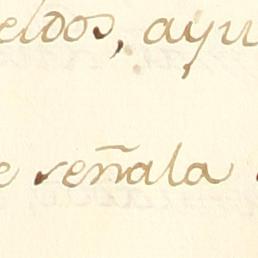 eldos, ayu
e señala